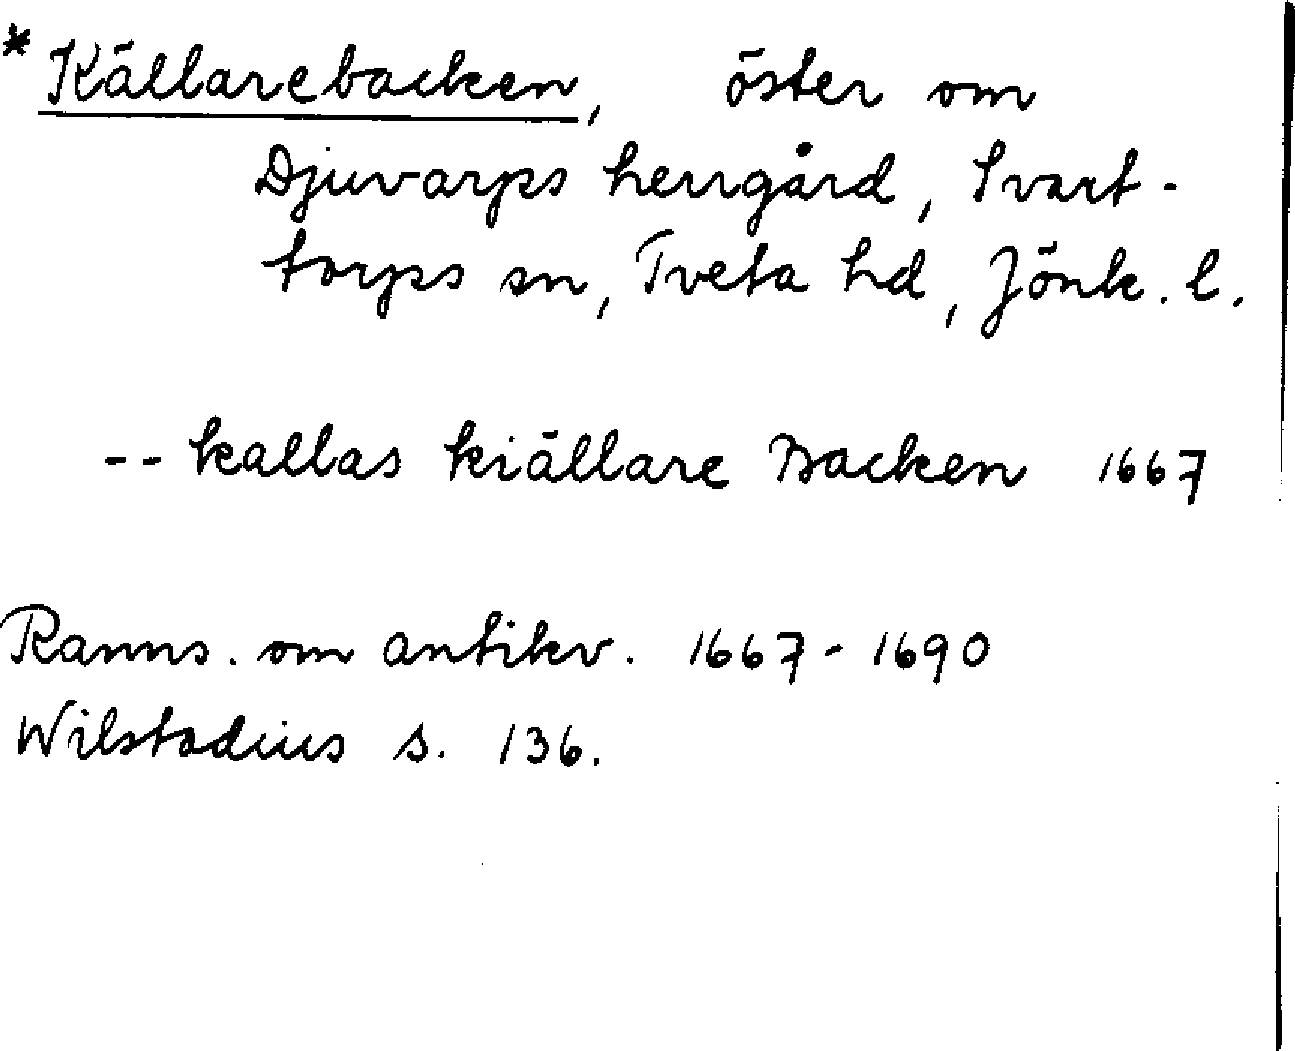 * Källarebacken, öster om
Djuvarps herrgård, Svart-
torps sn, Tveta hd, Jönk. l.
-- kallas kiällare Backen 1667
Ranns. om antikv. 1667-1690
Wilstadius s. 136.